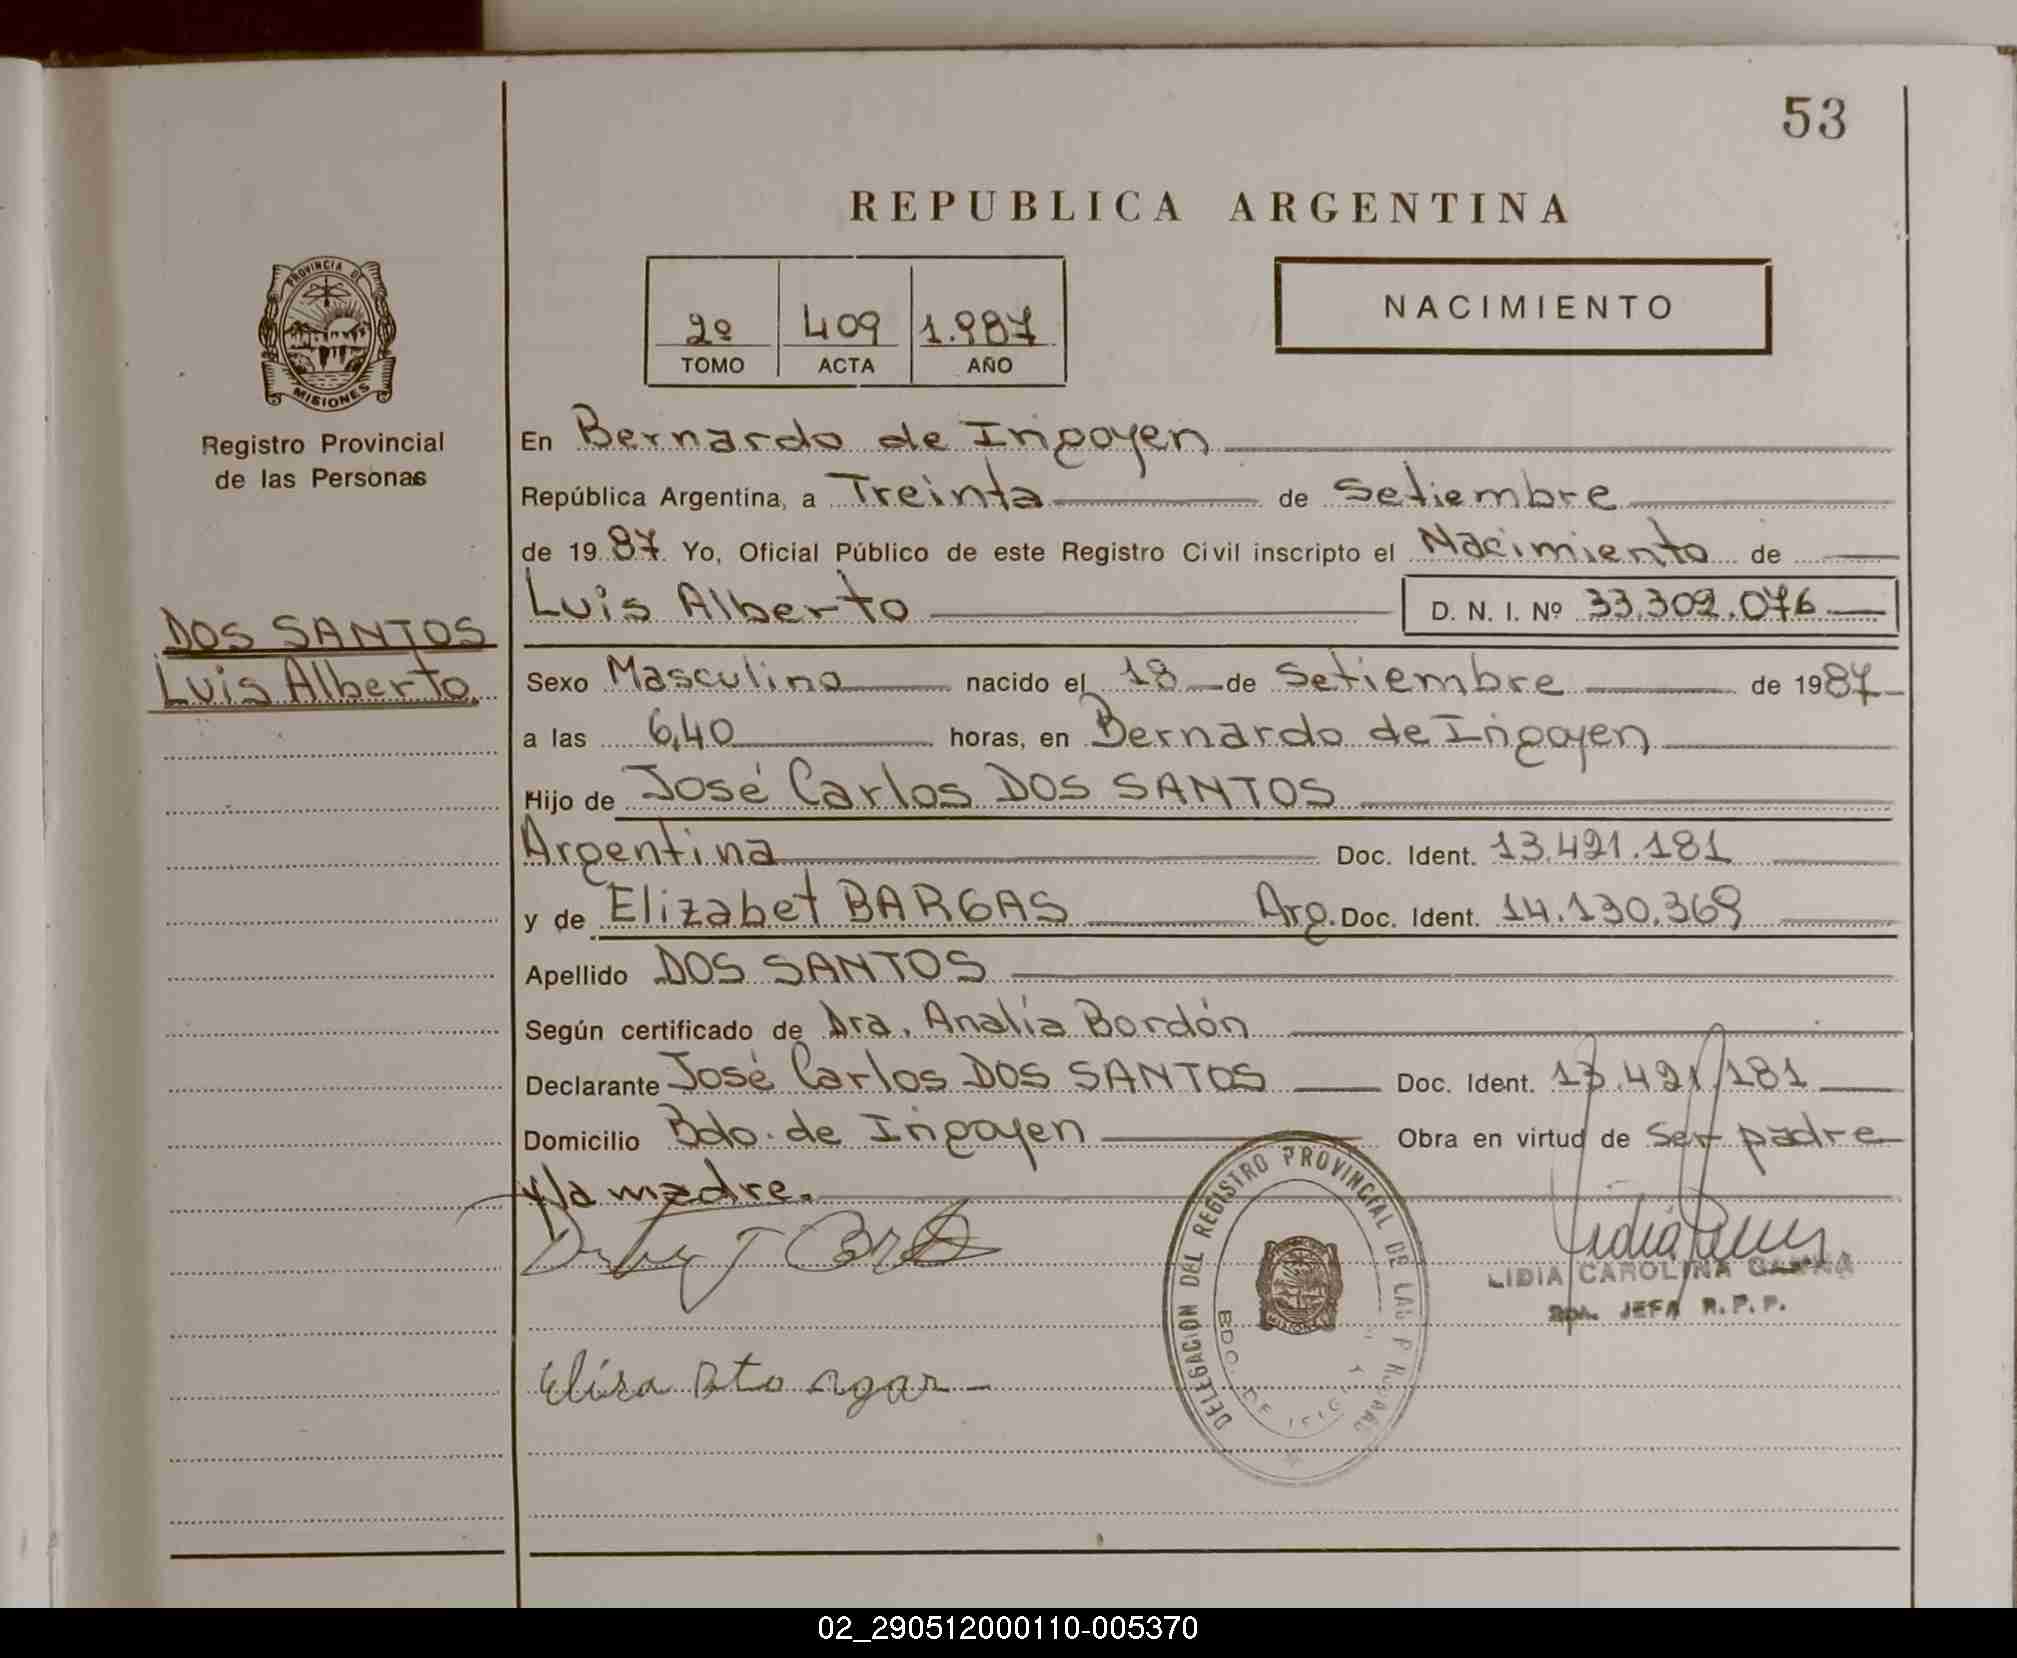 53
REPUBLICA ARGENTINA
2º 409 1.987
TOMO ACTA AÑO
NACIMIENTO
PROVINCIA DE
MISIONES
Registro Provincial
de las Personas
DOS SANTOS
Luis Alberto
En Bernardo de Irigoyen
República Argentina, a Treinta de Setiembre
de 1987. Yo, Oficial Público de este Registro Civil inscripto el Nacimiento de
Luis Alberto D. N. I. Nº 33.302.076
Sexo Masculino nacido el 18 de Setiembre de 1987
a las 6,40 horas, en Bernardo de Irigoyen
Hijo de José Carlos DOS SANTOS
Argentina Doc. Ident. 13.421.181
y de Elizabet BARGAS Arg. Doc. Ident. 14.130.369
Apellido DOS SANTOS
Según certificado de Dra. Analía Bordón
Declarante José Carlos DOS SANTOS Doc. Ident. 13.421.181
Domicilio Bdo. de Irigoyen Obra en virtud de ser padre
y la madre.
DELEGACION DEL REGISTRO PROVINCIAL DE LAS
BDO. DE
MISIONES
LIDIA CAROLINA
JEFA R.P.P.
02_290512000110-005370